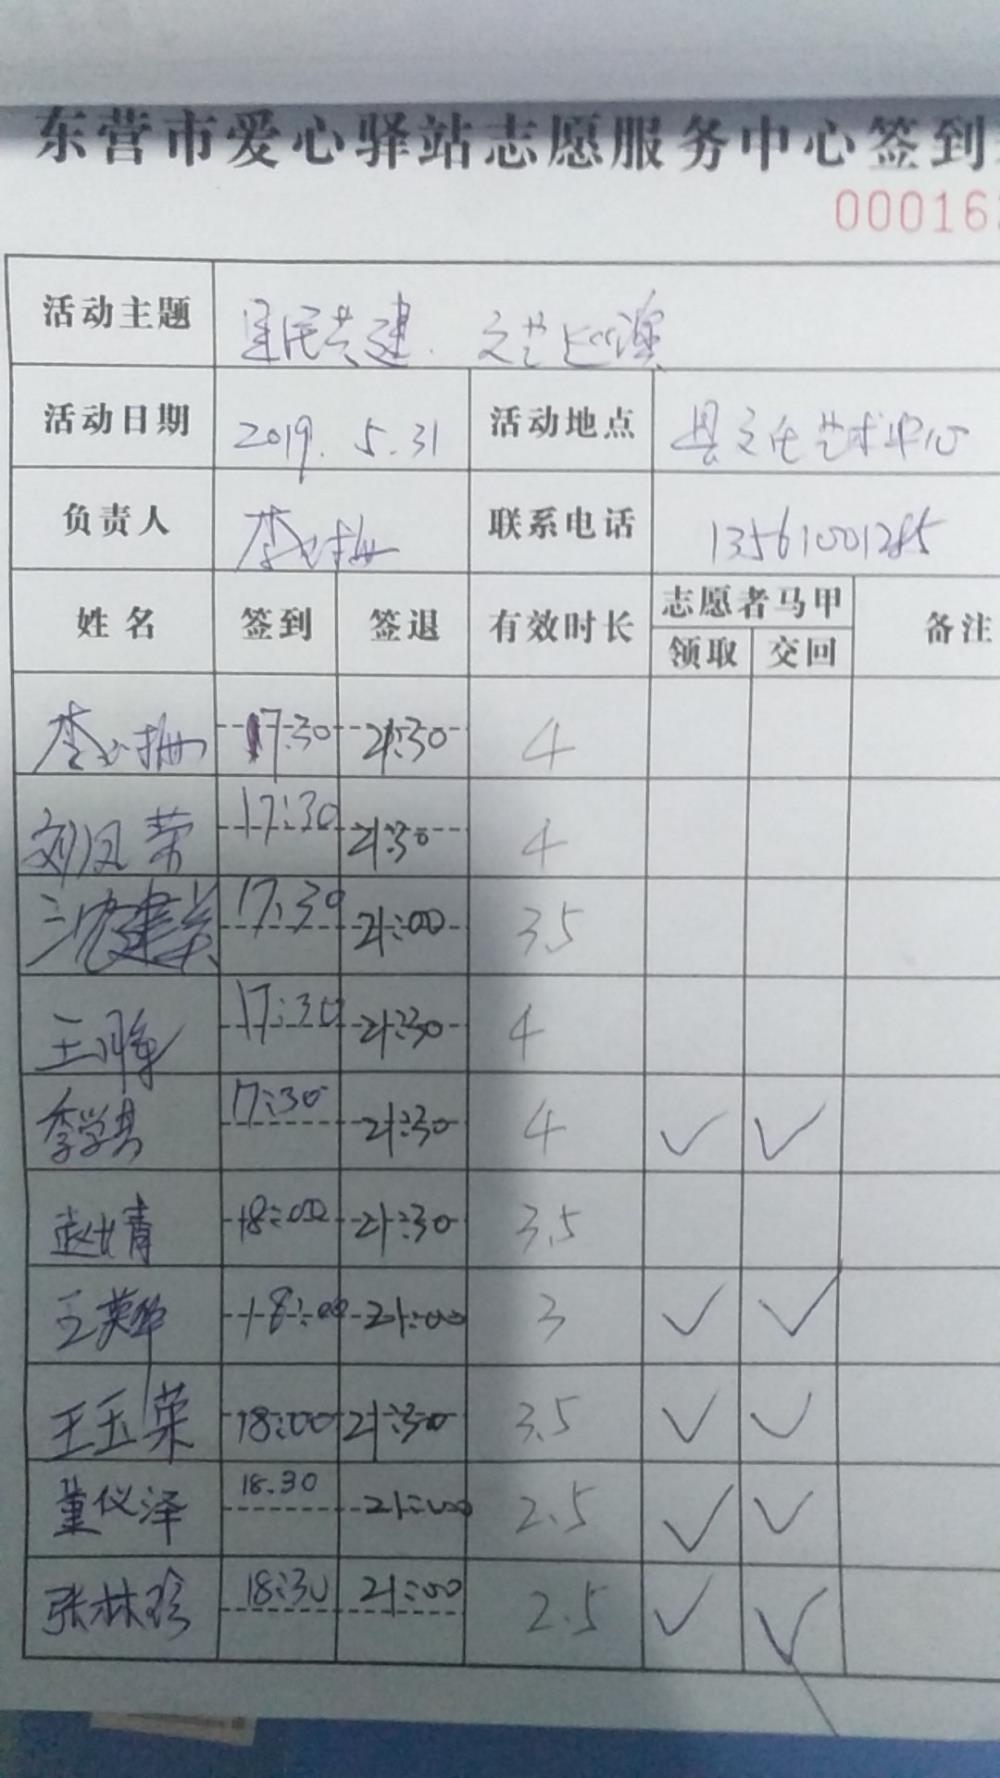 东营市爱心驿站志愿服务中心签到
00016
活动主题 军民共建 文艺巡演
活动日期 2019. 5. 31 活动地点 县文化艺术中心
负责人 联系电话 13561001285
姓名 签到 签退 有效时长 志愿者马甲 备注
领取 交回
17:30 21:30 4
刘凤荣 17:30 21:30 4
17:30 21:00 3.5
17:30 21:30 4
17:30 21:30 4 ✓ ✓
赵婧 18:00 21:30 3.5
王英华 18:00 21:00 3 ✓ ✓
王玉荣 18:00 21:30 3.5 ✓ ✓
董仪泽 18.30 21:00 2.5 ✓ ✓
张林珍 18:30 21:00 2.5 ✓ ✓